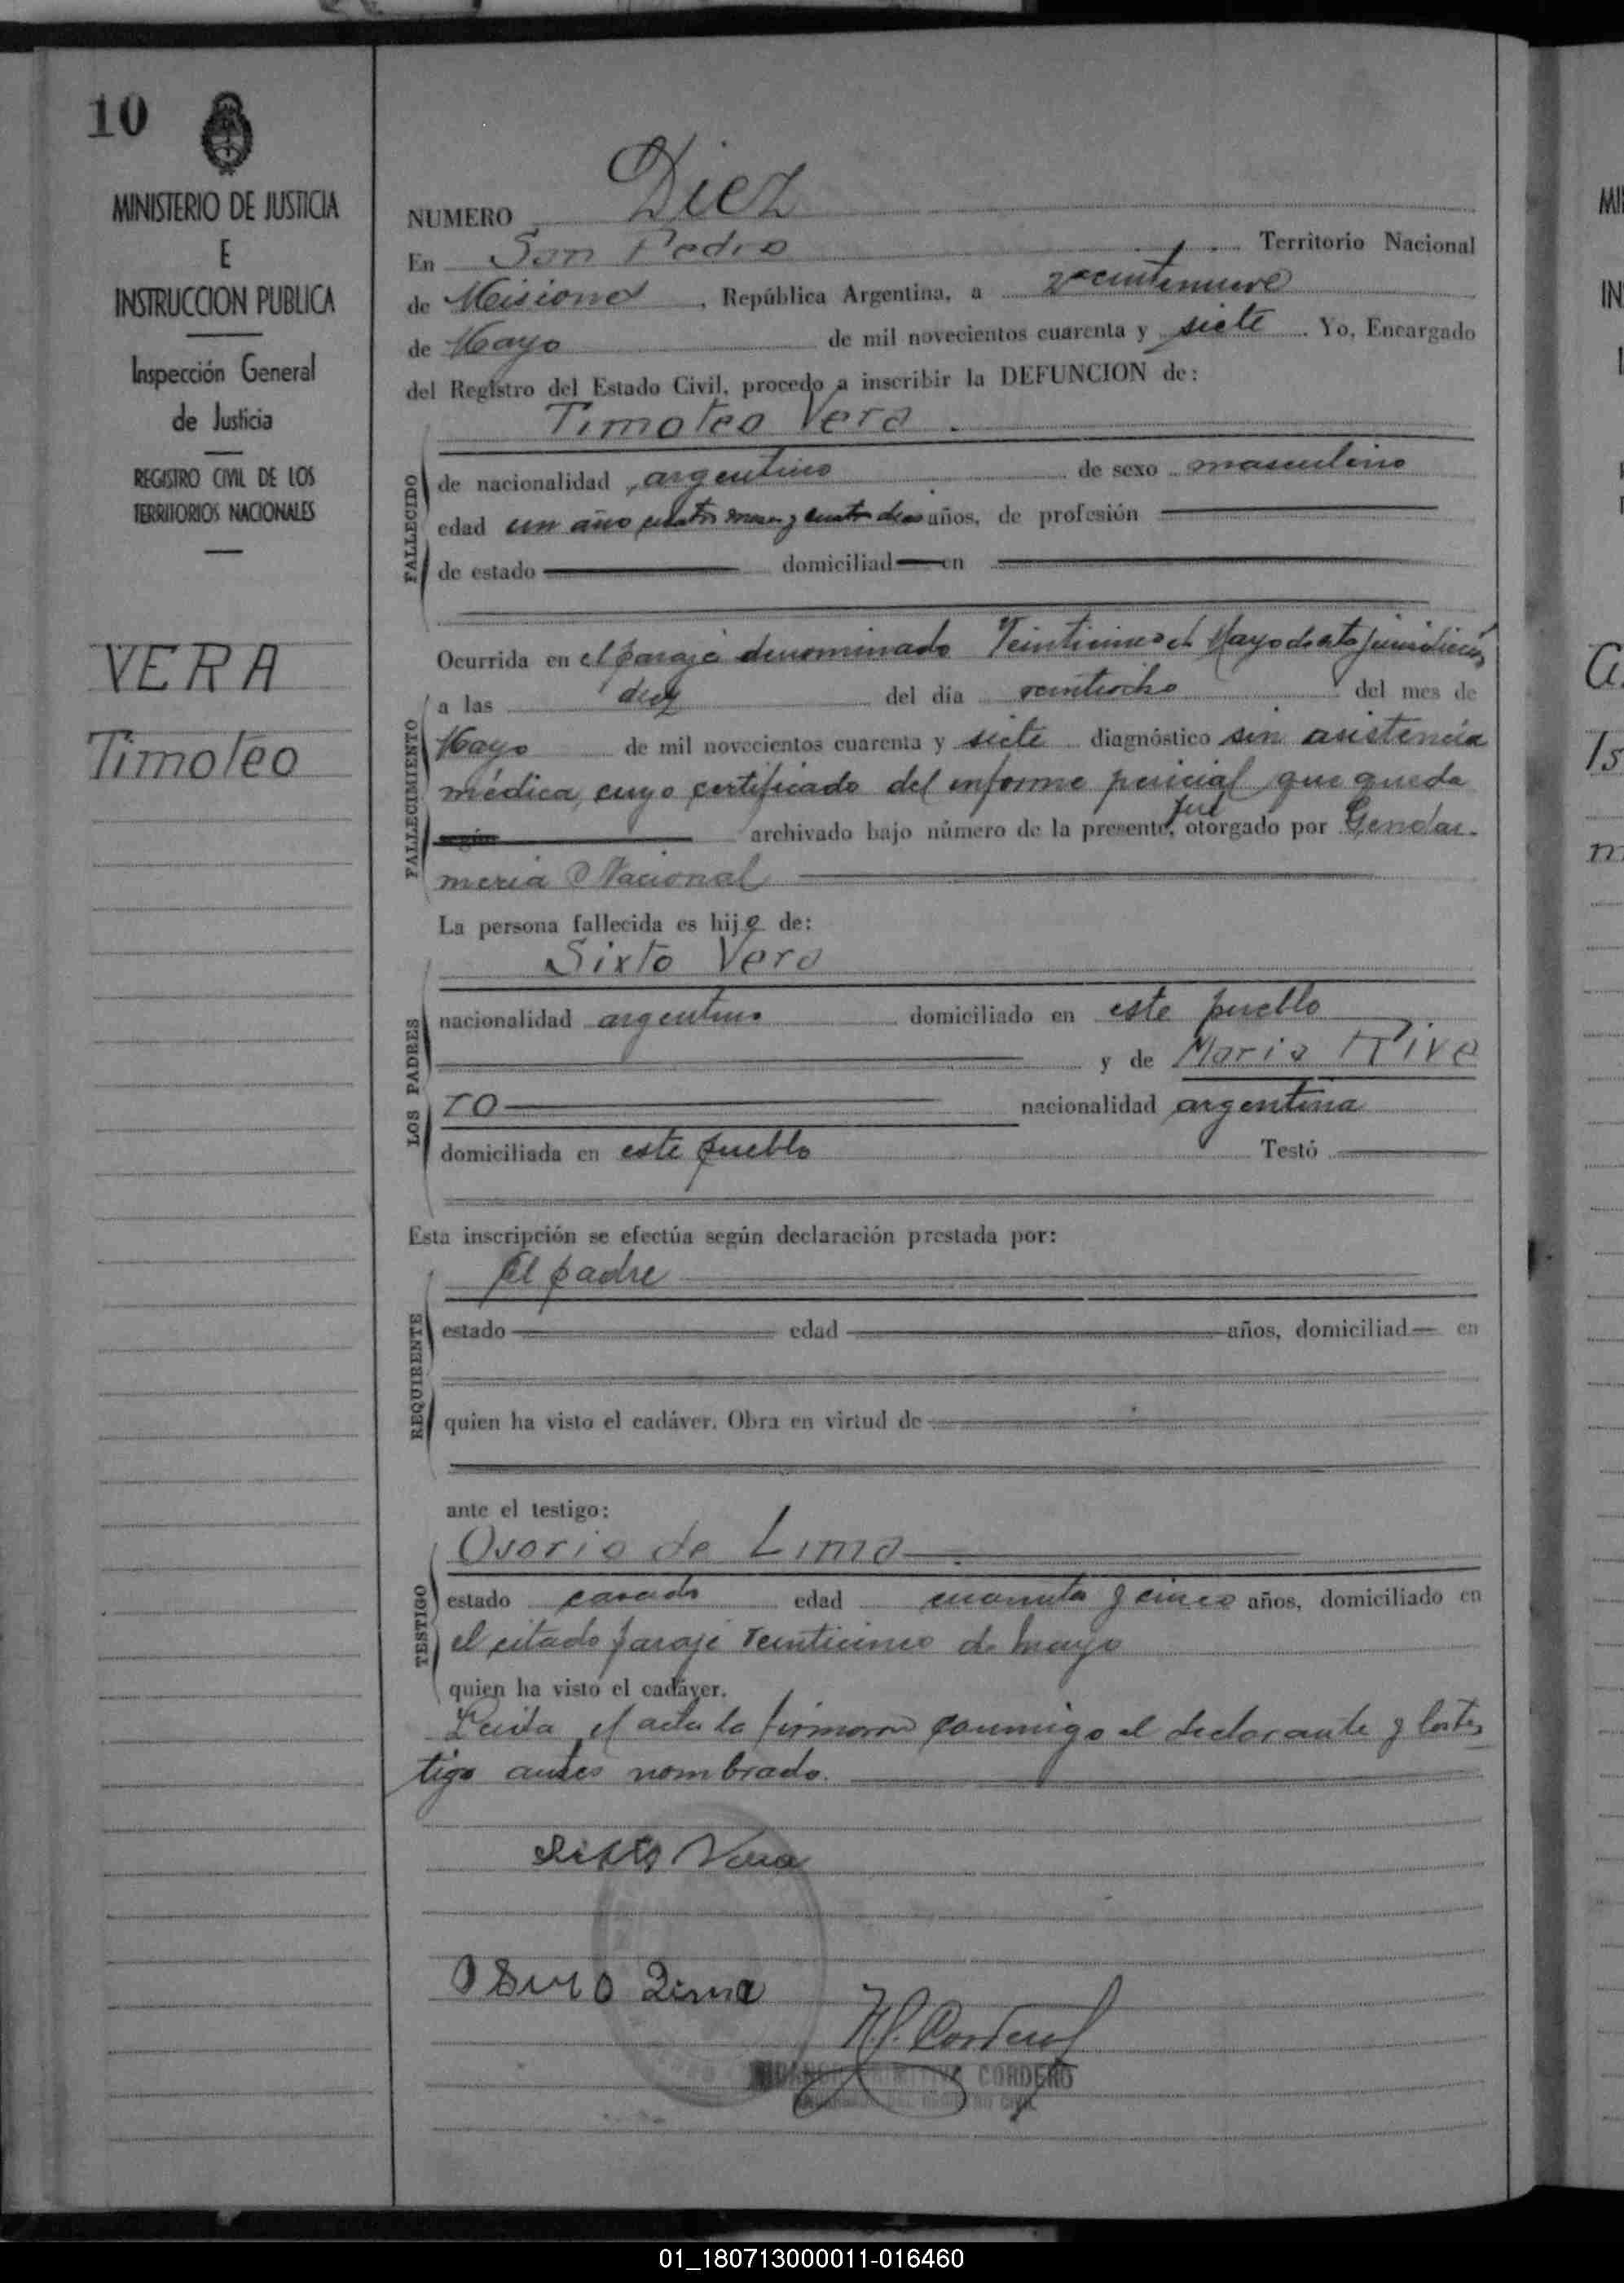 10
MINISTERIO DE JUSTICIA
E
INSTRUCCION PUBLICA
Inspección General
de Justicia
REGISTRO CIVIL DE LOS
TERRITORIOS NACIONALES
VERA
Timoteo
NUMERO Diez
En San Pedro Territorio Nacional
de Misiones, República Argentina, a veintinueve
de Mayo de mil novecientos cuarenta y siete. Yo, Encargado
del Registro del Estado Civil, procedo a inscribir la DEFUNCION de:
Timoteo Vera.
FALLECIDO
de nacionalidad argentino de sexo masculino
edad un año cuatro meses y cuatro dias años, de profesión
de estado domiciliad en
Ocurrida en el paraje denominado Veinticinco de Mayo de esta jurisdicción
FALLECIMIENTO
a las diez del día veintiocho del mes de
Mayo de mil novecientos cuarenta y siete diagnóstico sin asistencia
médica, cuyo certificado del informe pericial que queda
según archivado bajo número de la presente, fué otorgado por Gendar-
meria Nacional
La persona fallecida es hijo de:
Sixto Vera
LOS PADRES
nacionalidad argentino domiciliado en este pueblo
y de Maria Rive
ro nacionalidad argentina
domiciliada en este pueblo Testó
Esta inscripción se efectúa según declaración prestada por:
El padre
REQUIRENTE
estado edad años, domiciliad en
quien ha visto el cadáver. Obra en virtud de
ante el testigo:
Osorio de Lima
TESTIGO
estado casado edad cuarenta y cinco años, domiciliado en
el citado paraje Veinticinco de Mayo
quien ha visto el cadáver.
Leida el acta la firmaron conmigo el declarante y el tes
tigo antes nombrado.
Sixto Vera
Osorio Lima
Cordero
PRIMITIVA CORDERO
DEL REGISTRO CIVIL
01_180713000011-016460